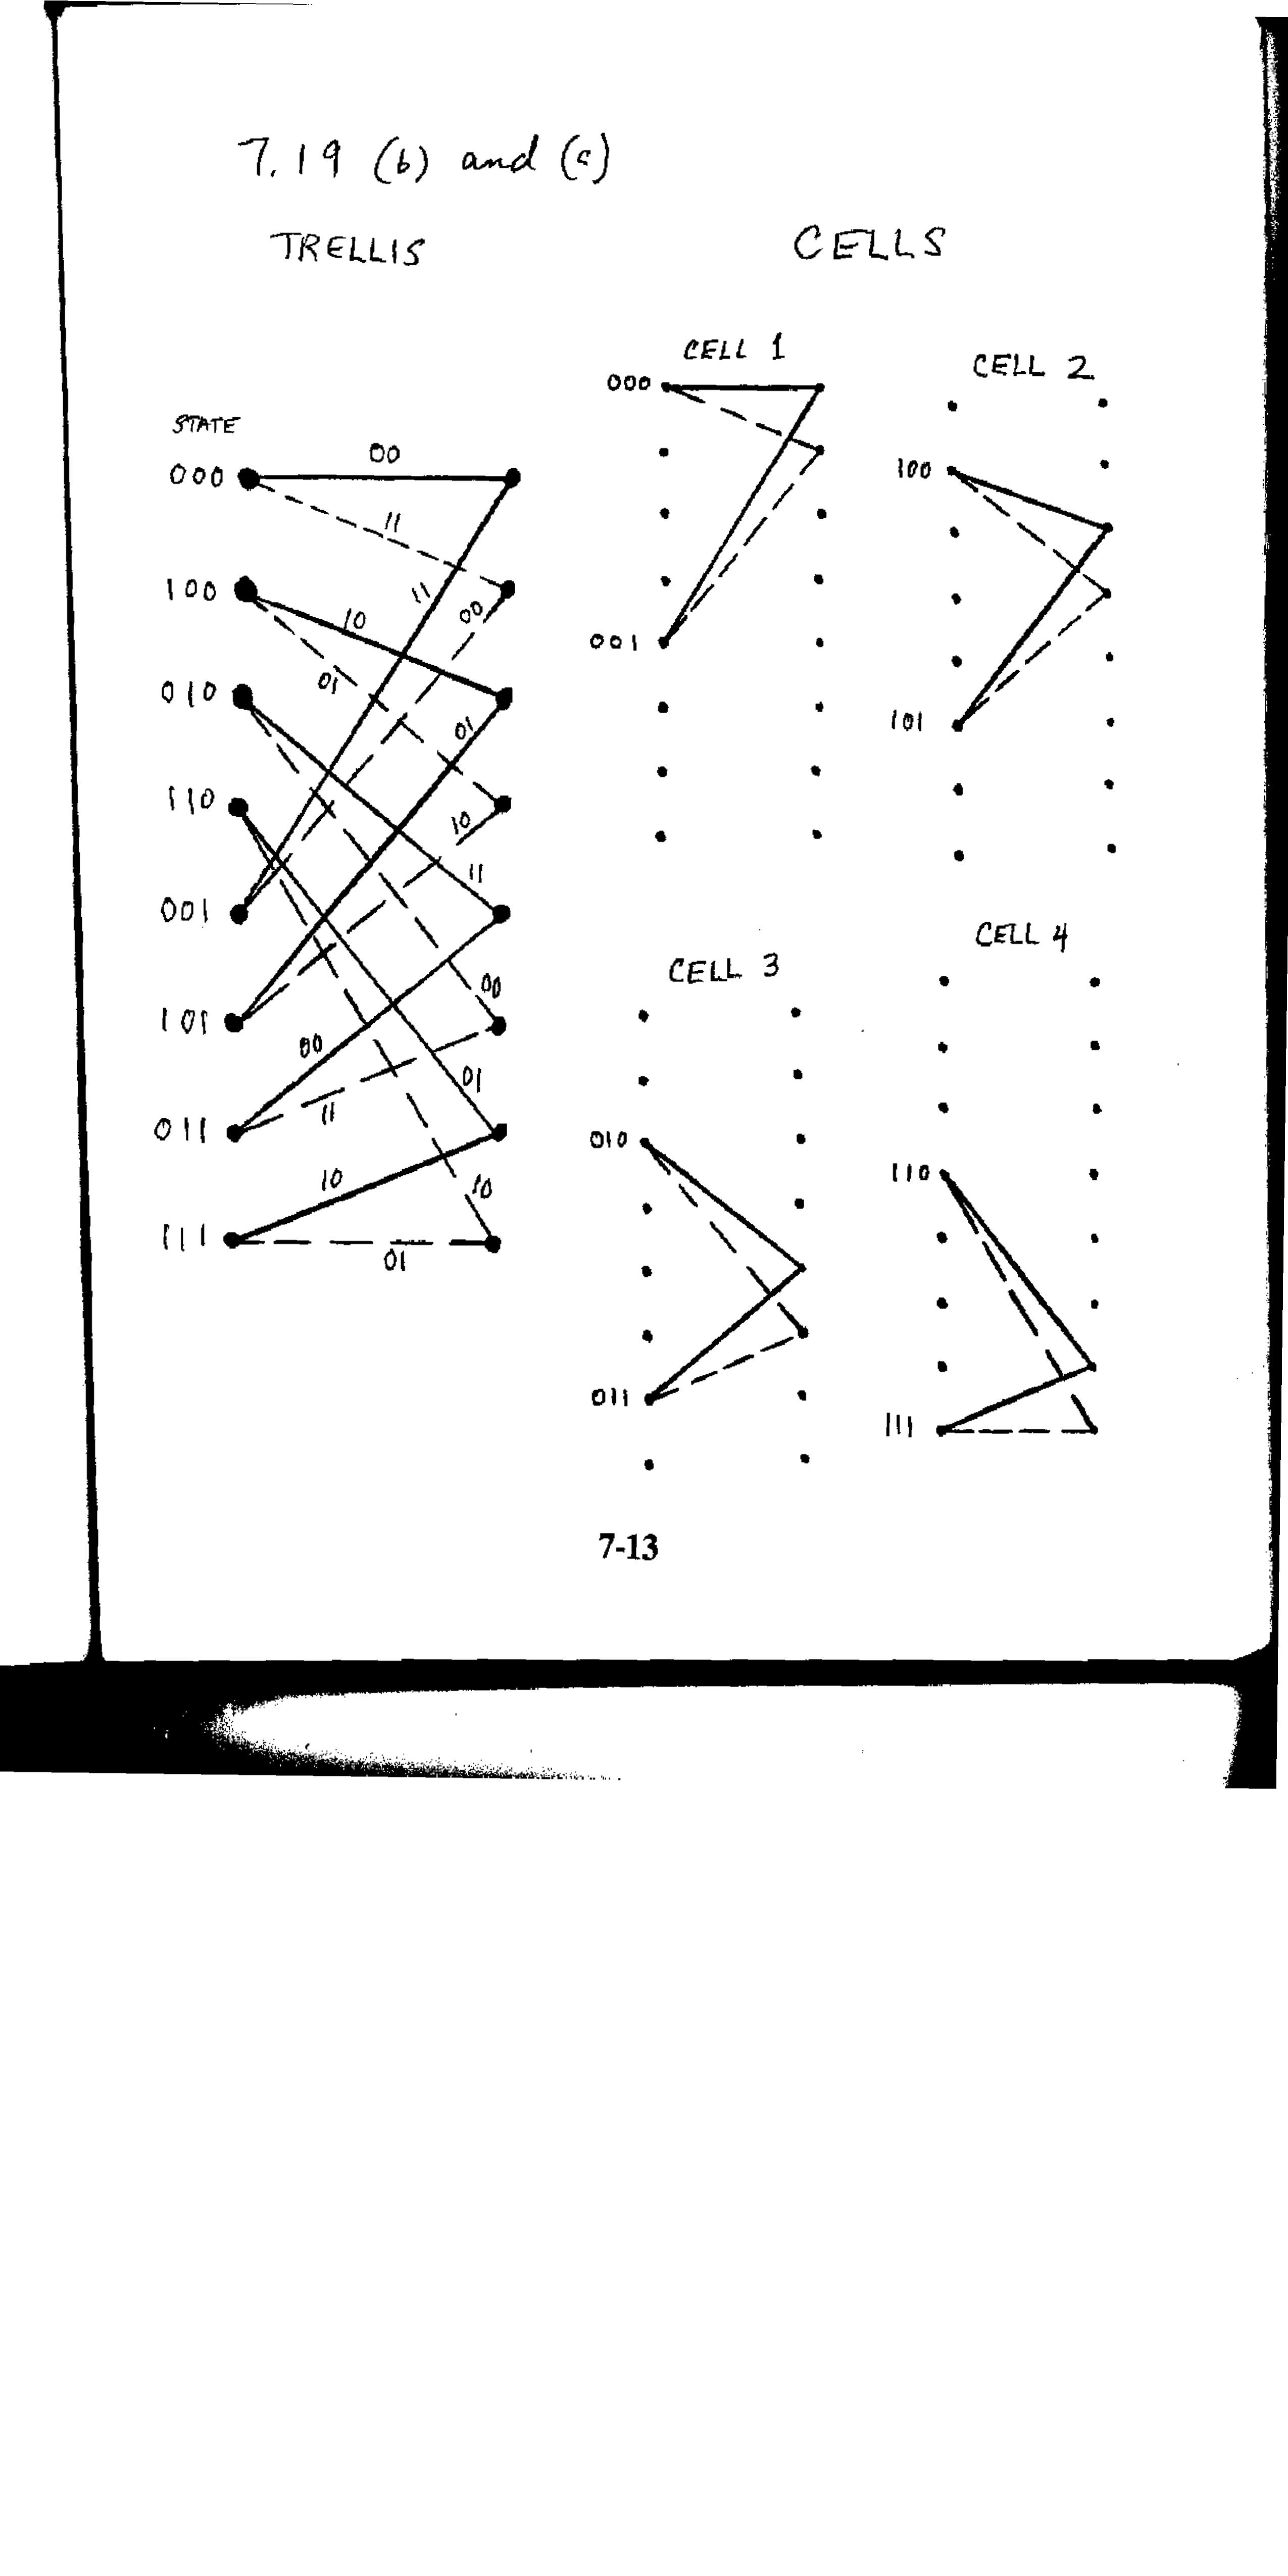 7.19 (b) and (c)
TRELLIS
CELLS
STATE
000
100
010
110
001
101
011
111
00
11
10
11
00
01
01
10
11
00
00
01
11
10
10
01
CELL 1
000
001
CELL 2
100
101
CELL 3
010
011
CELL 4
110
111
7-13